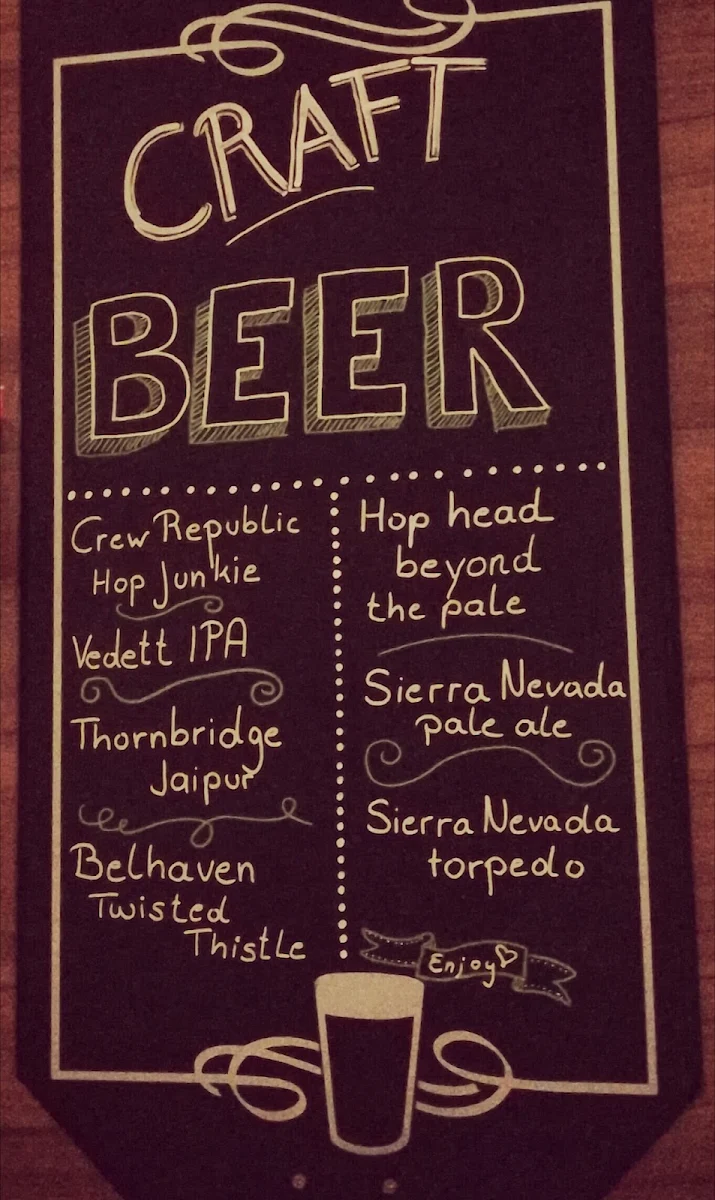 CRAFT
BEER
Crew Republic
Hop Junkie
Vedett IPA
Thornbridge
Jaipur
Belhaven
Twisted
Thistle
Hop head
beyond
the pale
Sierra Nevada
pale ale
Sierra Nevada
torpedo
Enjoy